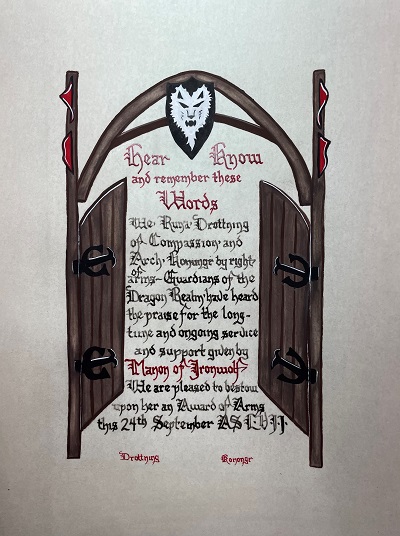 Hear Know
and remember these
Words
We Runa Drottning
of Compassion and
Arch, Konungr by right
of
arms - Guardians of the
Dragon Realm have heard
the praise for the long-
time and ongoing service
and support given by
Manon of Ironwolf
We are pleased to bestow
upon her an Award of Arms
this 24th September AS LVII.
Drottning Konungr